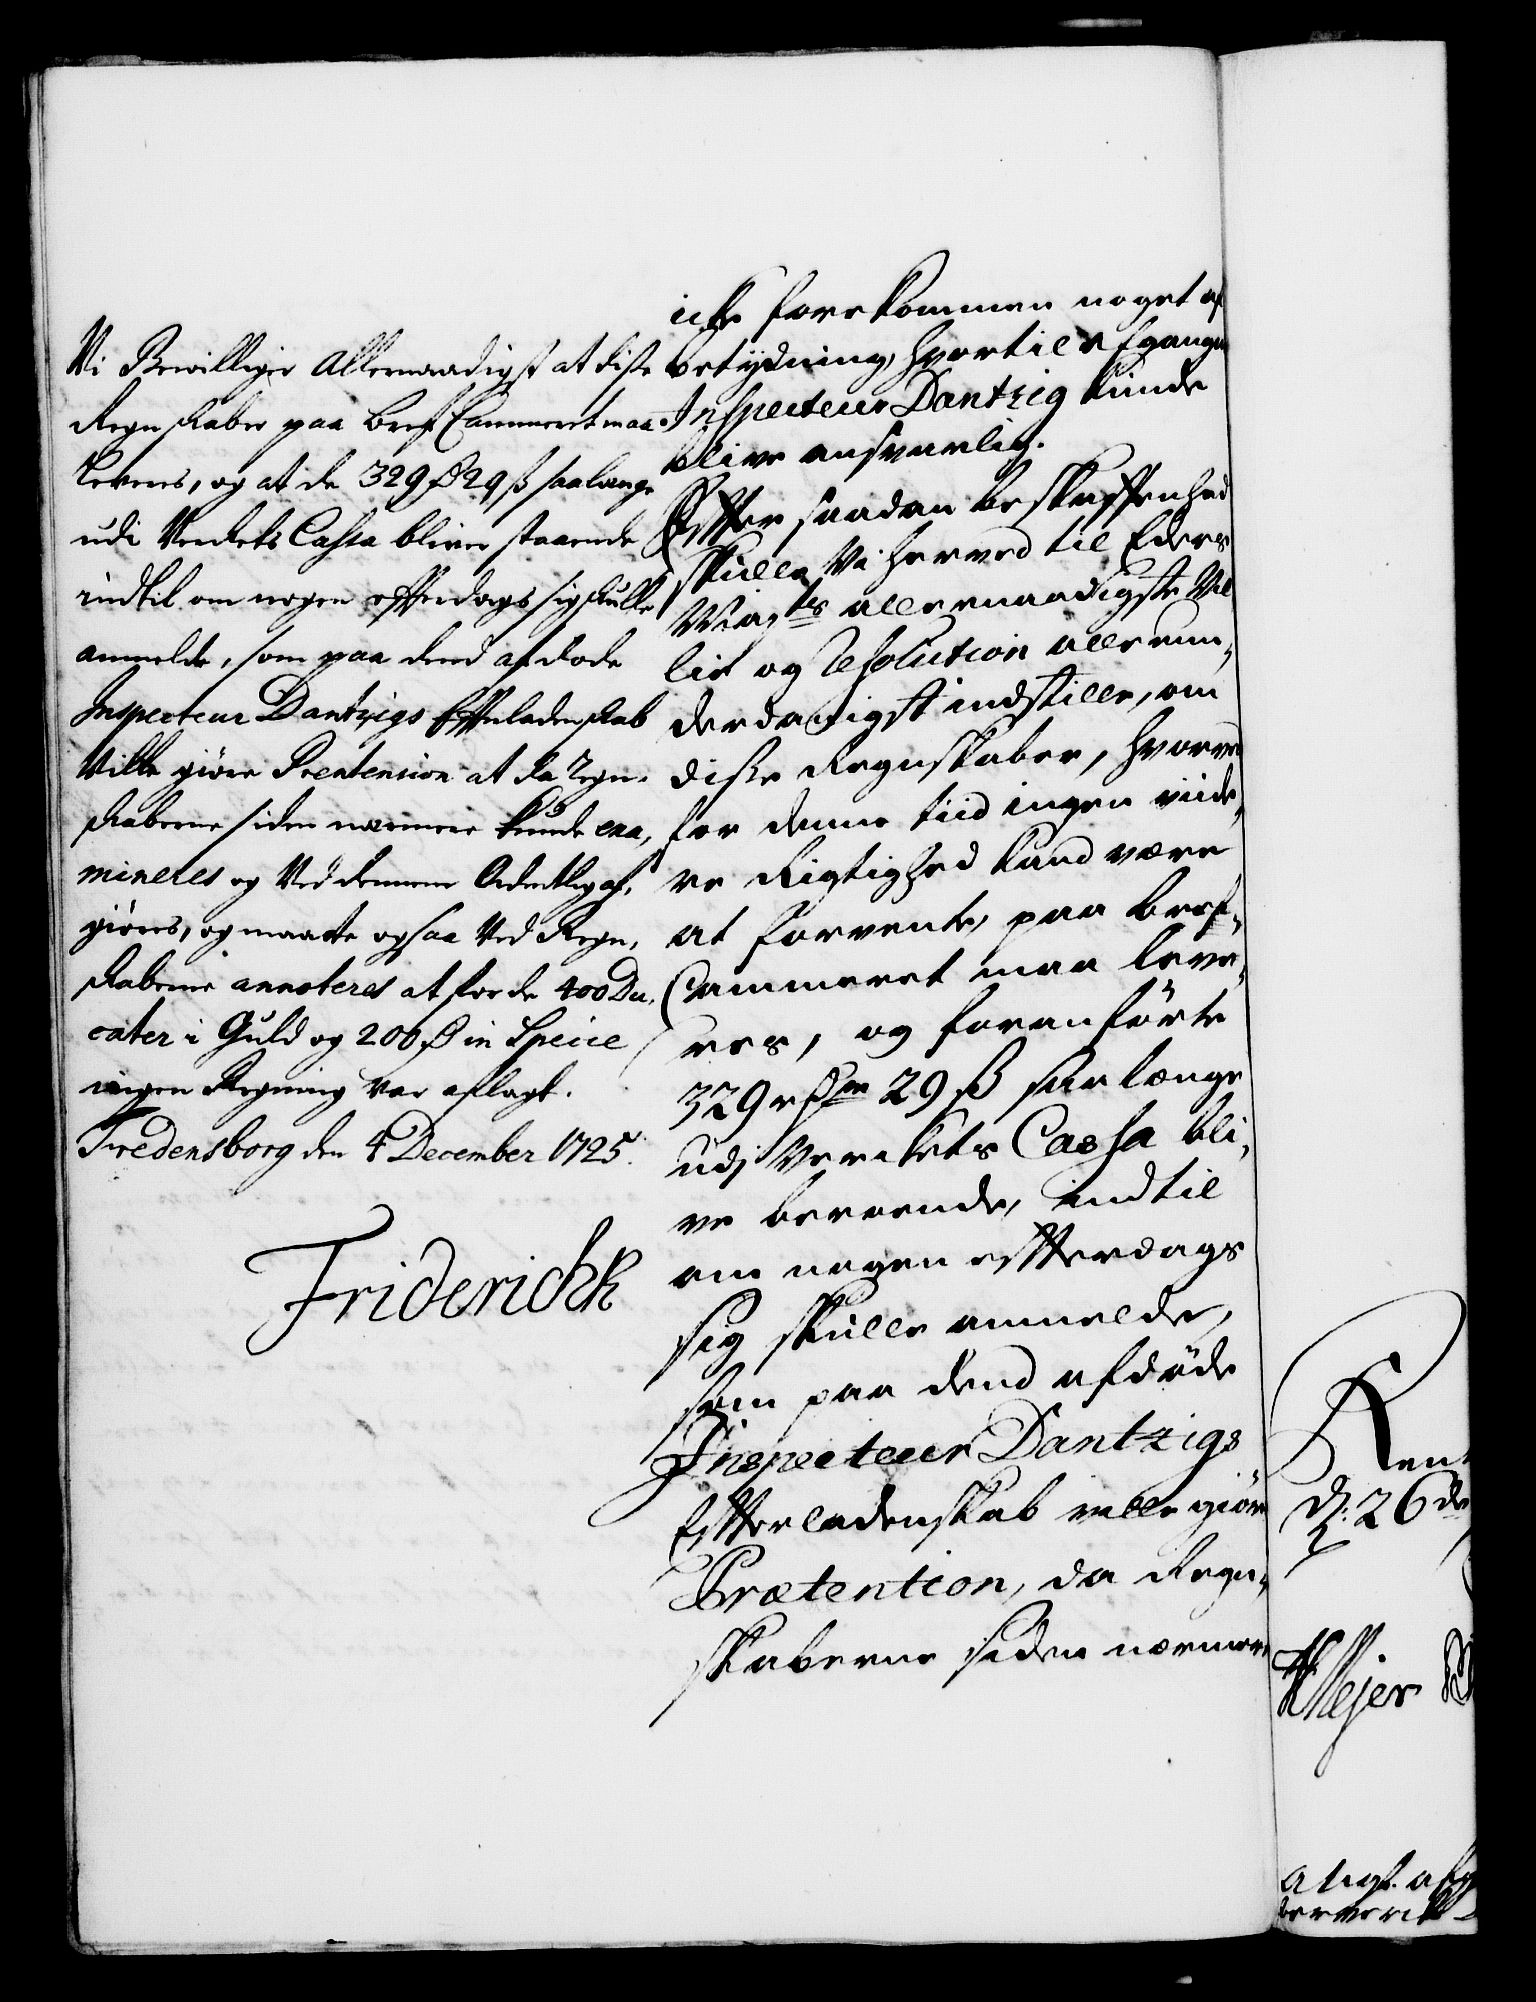 Vi Bewilliger Allernaadigst at disse
Regnskaber paa Bref Cammeret maa
leveres, og at de 329 rd 29 ß saalænge
udi Verkets Cassa bliver staaende
indtil om nogen efterdags sig skulle
anmelde, som paa dend afdøde
Inspecteur Dantzigs Efterladenskab
Ville giøre Prentension at da Regn-
skaberne siden nærmere kunde exa-
mineres og Ved dennem Ordentlig af-
giøres, og maatte ogsaa Ved Regn-
skaberne annoteres at for de 400 Du-
cater i Guld og 200 rd in Specie
ingen Regning var aflagt.
Fredensborg den 4 December 1725.
Friderich R
icke forekommen noget af
betydning, hvortil afgangne
Inspecteur Dantzig kunde
blive ansvarlig.
Efter saadan beskaffenhed
skulle Vi herved til Eders
Mayts allernaadigste Vil-
lie og Resolution allerun-
derdanigst indstille, om
disse Regnskaber, hvorved
for denne tiid ingen viide-
re Rigtighed kand være
at forvente, paa Bref-
Cammeret maa leve-
res, og foranførte
329 rdr 29 ß saa længe
udj Verckets Cassa bli-
ve beroende, indtil
om nogen efterdags
sig skulle anmelde,
som paa dend afdøde
Inspecteur Dantzigs
Efterladenskab ville giøre
Prætention, da Regn-
skaberne siden nærmere
Rent
d: 26 de
Mejer